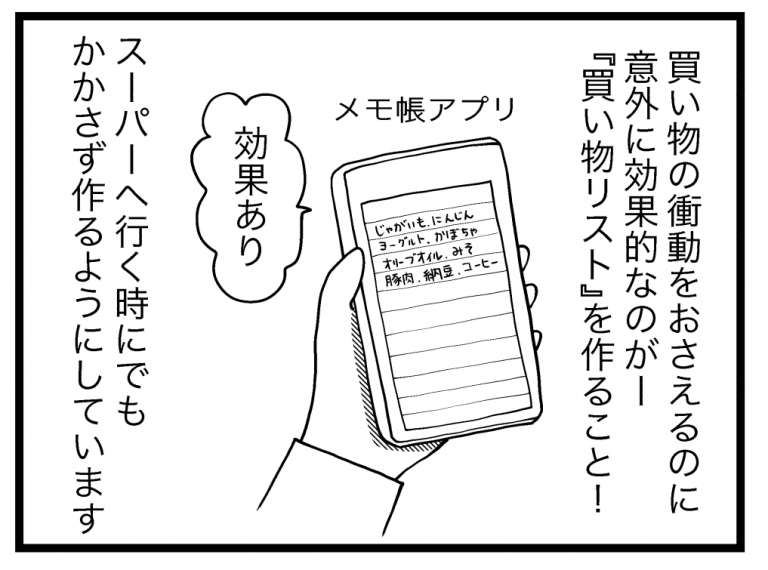 買い物の衝動をおさえるのに
意外に効果的なのがー
『買い物リスト』を作ること！
メモ帳アプリ
じゃがいも、にんじん
ヨーグルト、かぼちゃ
オリーブオイル、みそ
豚肉、納豆、コーヒー
効果あり
スーパーへ行く時にでも
かかさず作るようにしています